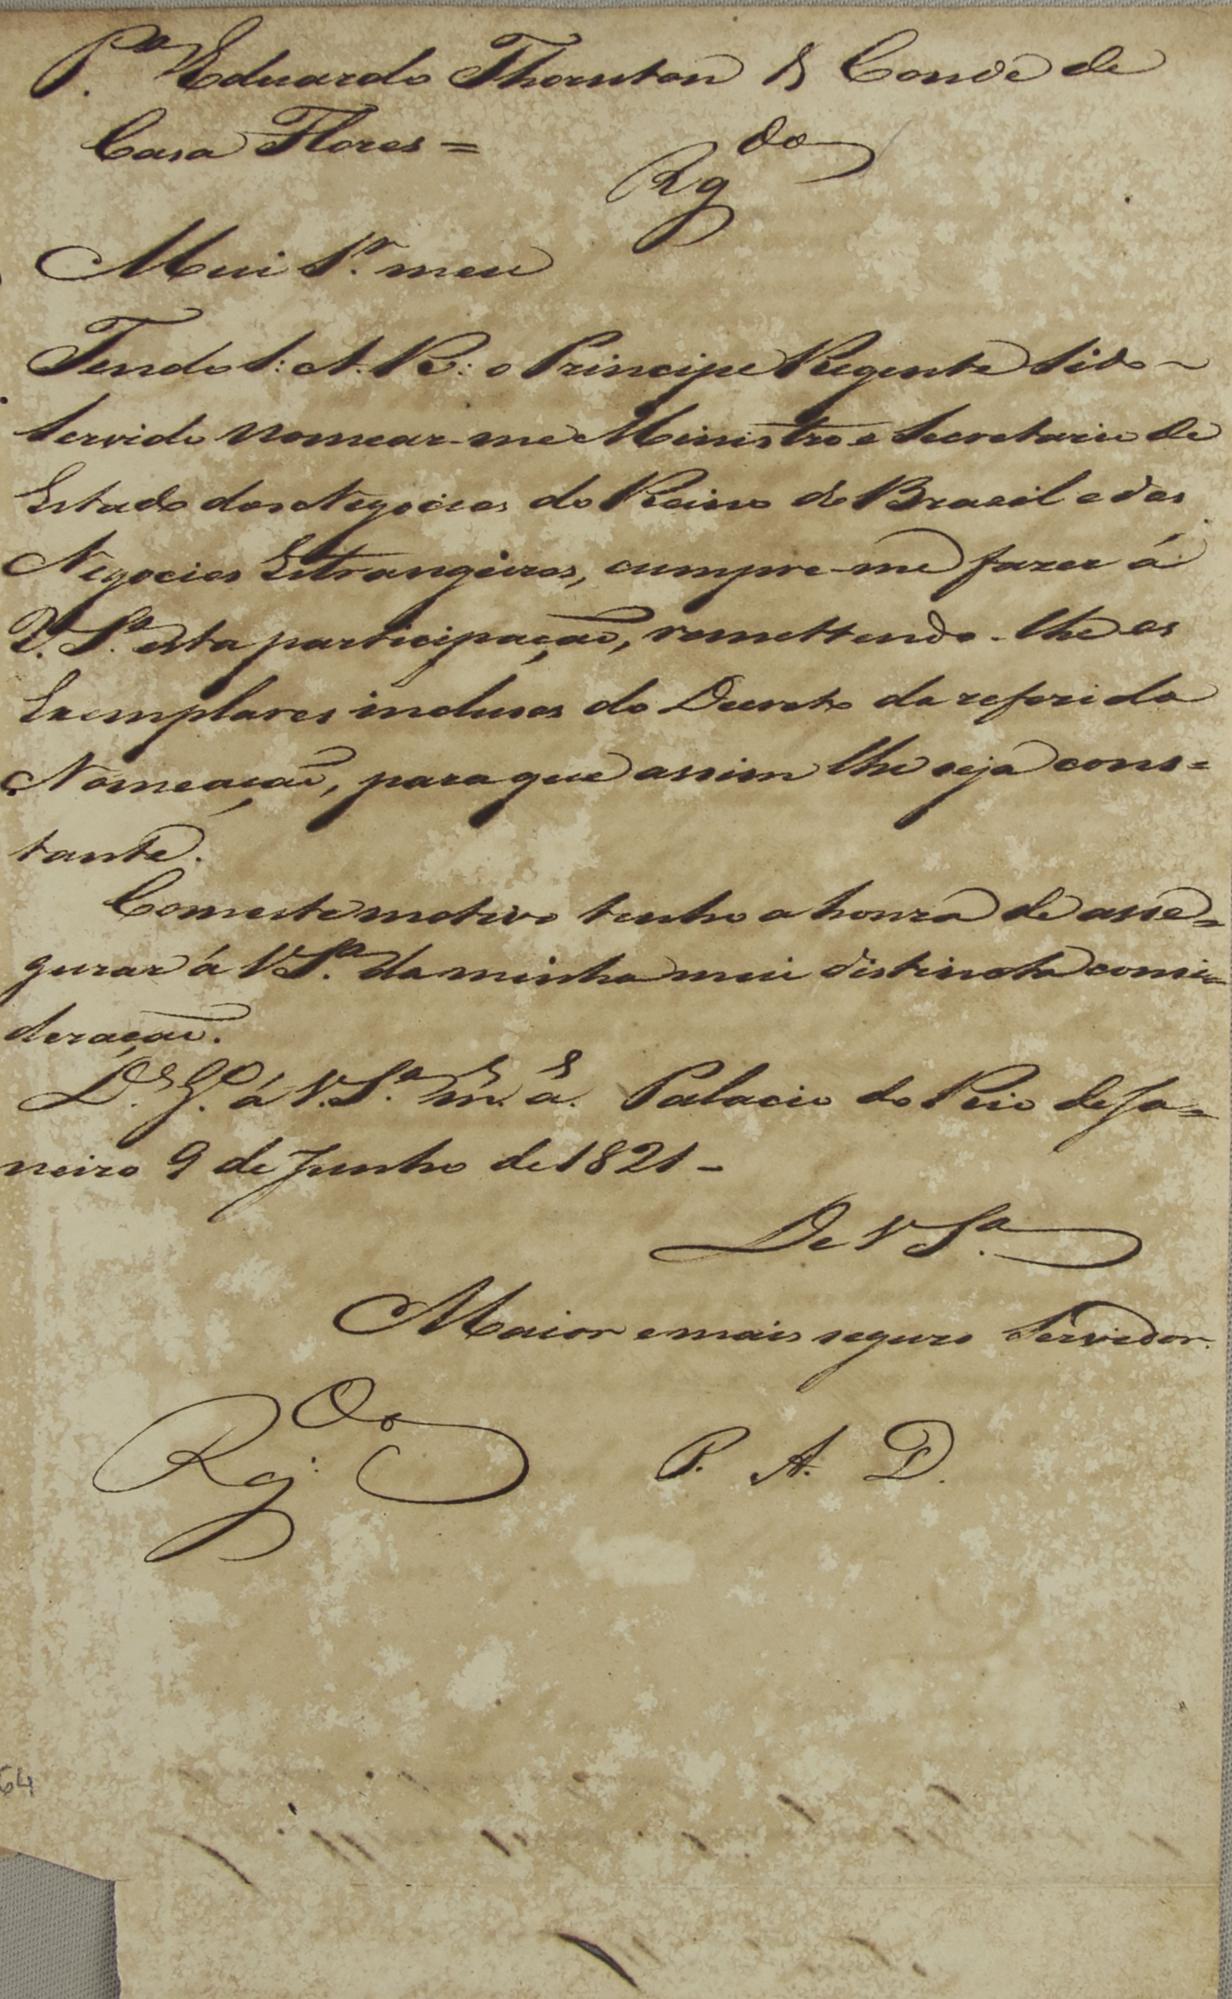 P.ª Eduardo Thornton & Conde de
Casa Flores =
Rg.do
Mui S.r meu
Tendo S: A. R: o Principe Regente sido
servido nomear-me Ministro e Secretario de
Estado dos Negocios do Reino do Brazil e dos
Negocios Estrangeiros, cumpre-me fazer á
V. S.ª esta participação, remettendo-lhe os
Exemplares inclusos do Decreto da referida
Nomeação, para que assim lhe seja cons=
tante.
Com este motivo tenho a honra de asse=
gurar á V S.ª da minha mui distincta consi=
deração.
D.s G.e á V. S.ª m.s a.s Palacio do Rio de Ja=
neiro 9 de Junho de 1821 -
De V S.ª
Maior e mais seguro Servidor.
Rg.do P. A. D.
64